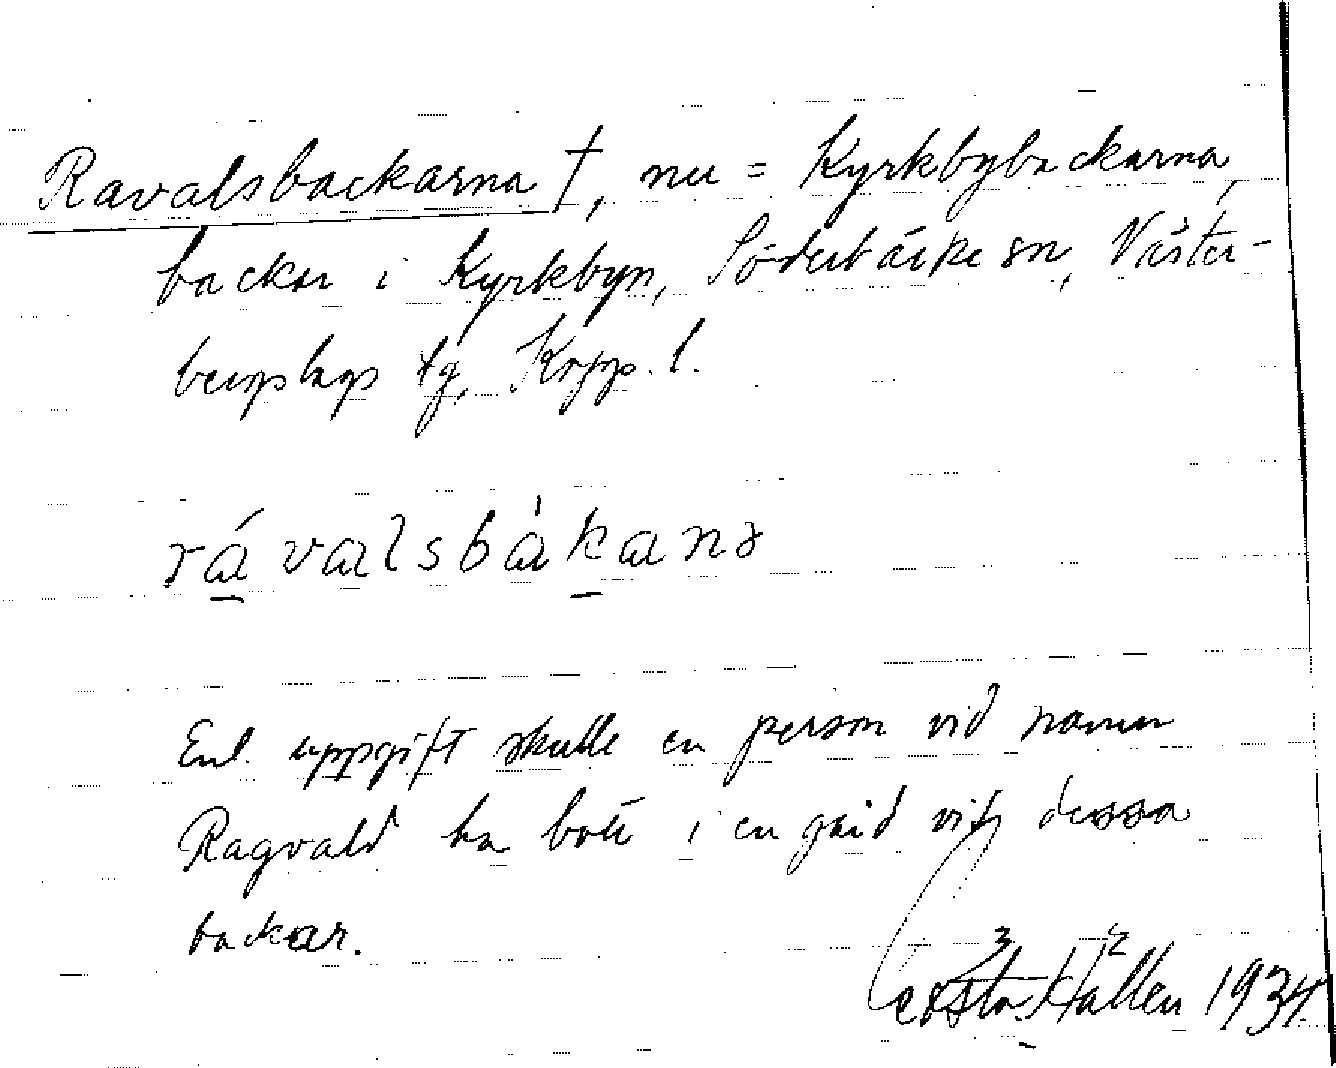 Ravalsbackarna †, nu = Kyrkbybackarna,
backar i Kyrkbyn, Söderbärke sn, Väster-
bergslags tg, Kopp. l.
rávalsbàkanɘ
Enl. uppgift skulle en person vid namn
Ragvald ha bott i en gård vid dessa
backar.
Gösta Hallén 1934